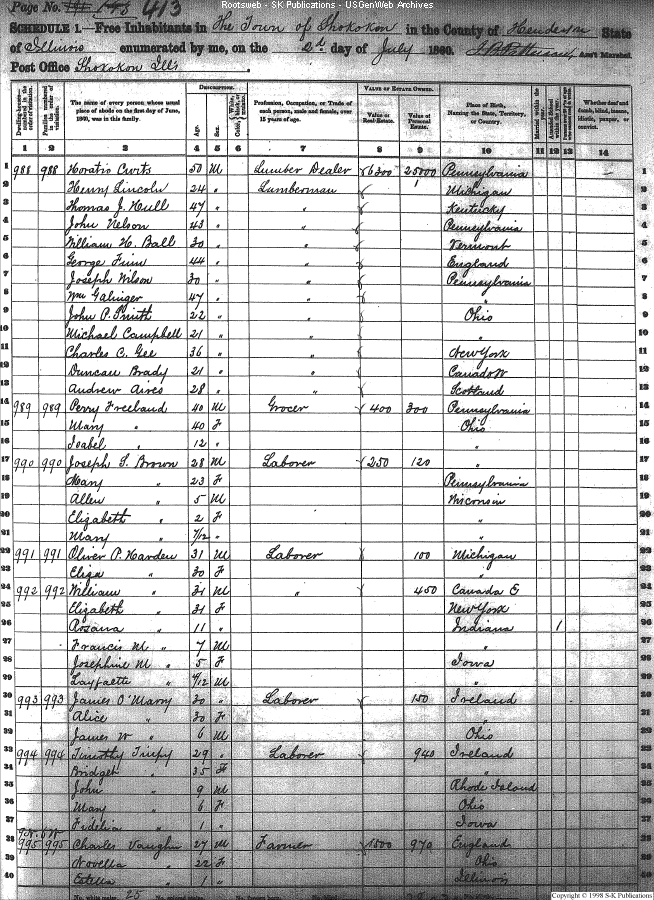 Rootsweb - SK Publications - USGenWeb Archives
Page No. 413
SCHEDULE 1.—Free Inhabitants in The Town of Shokokon in the County of Henderson State
of Illinois enumerated by me, on the 2d day of July 1860. Ass't Marshal
Post Office Shokokon Ills
Dwelling-houses numbered in the order of visitation. Families numbered in the order of visitation. The name of every person whose usual place of abode on the first day of June, 1860, was in this family. DESCRIPTION. Age. Sex. Profession, Occupation, or Trade of each person, male and female, over 15 years of age. VALUE OF ESTATE OWNED. Value of Real Estate. Value of Personal Estate. Place of Birth, Naming the State, Territory, or Country. Married within the year. Attended School within the year. Whether deaf and dumb, blind, insane, idiotic, pauper, or convict.
1 2 3 4 5 6 7 8 9 10 11 12 13 14
1 988 988 Horatio Curts 50 M Lumber Dealer 6300 25000 Pennsylvania 1
2 Henry Lincoln 24 " Lumberman Michigan 2
3 Thomas J. Hull 47 " " Kentucky 3
4 John Nelson 43 " " Pennsylvania 4
5 William H. Ball 30 " " Vermont 5
6 George Finn 44 " " England 6
7 Joseph Wilson 30 " " Pennsylvania 7
8 Wm Galinger 47 " " " 8
9 John P. Smith 22 " " Ohio 9
10 Michael Campbell 21 " " " 10
11 Charles C. Gee 36 " " New York 11
12 Duncan Brady 21 " " Canada W 12
13 Andrew Aires 28 " " Scotland 13
14 989 989 Perry Freeland 40 M Grocer 400 300 Pennsylvania 14
15 Mary " 40 F Ohio 15
16 Isabel " 12 " " 16
17 990 990 Joseph S. Brown 28 M Laborer 250 120 " 17
18 Mary " 23 F Pennsylvania 18
19 Allen " 5 M Wisconsin 19
20 Elizabeth " 2 F " 20
21 Mary " 7/12 " " 21
22 991 991 Oliver P. Harden 31 M Laborer 100 Michigan 22
23 Eliza " 30 F " 23
24 992 992 William " 31 M " 450 Canada E 24
25 Elizabeth " 31 F New York 25
26 Rosana " 11 " Indiana 1 26
27 Francis M " 7 M " 27
28 Josephine M " 5 F Iowa 28
29 Layfaette " 4/12 M " 29
30 993 993 James O'Marry 30 " Laborer 150 Ireland 30
31 Alice " 30 F " 31
32 James W " 6 M Ohio 32
33 994 994 Timothy 29 " Laborer 940 Ireland 33
34 Bridget " 35 F " 34
35 John " 9 M Rhode Island 35
36 Mary " 6 F Ohio 36
37 Fidelia " 1 " Iowa 37
38 995 995 Charles Vaughn 27 M Farmer 1500 970 England 38
39 Novella " 22 F Ohio 39
40 Estella " 1 " Illinois 40
No. white males, 25
Copyright © 1998 S-K Publications